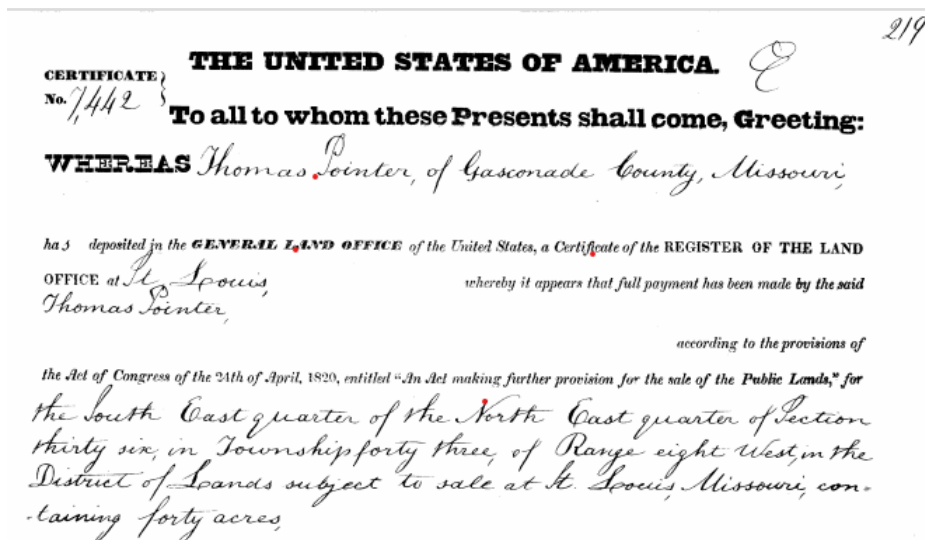 219
THE UNITED STATES OF AMERICA. E
CERTIFICATE
No. 7,442
To all to whom these Presents shall come, Greeting:
WHEREAS Thomas Pointer, of Gasconade County, Missouri,
has deposited in the GENERAL LAND OFFICE of the United States, a Certificate of the REGISTER OF THE LAND
OFFICE at St. Louis, whereby it appears that full payment has been made by the said
Thomas Pointer,
according to the provisions of
the Act of Congress of the 24th of April, 1820, entitled "An Act making further provision for the sale of the Public Lands," for
the South East quarter of the North East quarter of Section
thirty six, in Township forty three, of Range eight West, in the
District of Lands subject to sale at St. Louis, Missouri, con-
-taining forty acres,